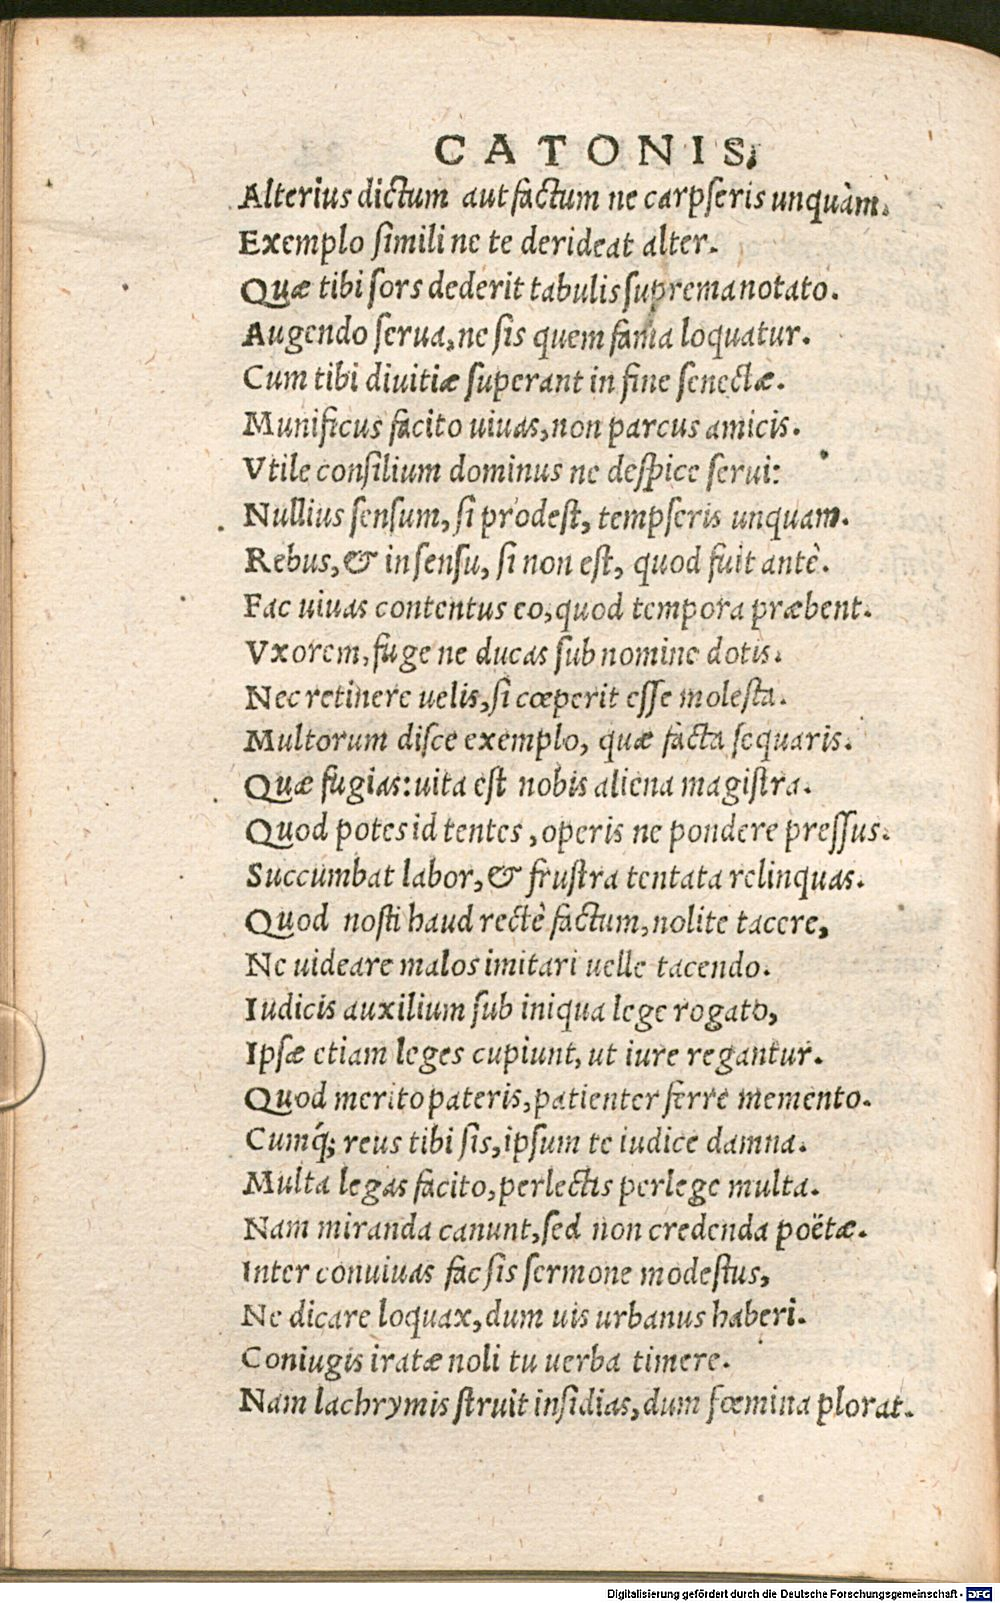 CATONIS,
Alterius dictum aut factum ne carpseris unquàm.
Exemplo simili ne te derideat alter.
Quæ tibi sors dederit tabulis suprema notato.
Augendo serua, ne sis quem fama loquatur.
Cum tibi diuitiæ superant in fine senectæ.
Munificus facito uiuas, non parcus amicis.
Vtile consilium dominus ne despice serui:
Nullius sensum, si prodest, tempseris unquam.
Rebus, & in sensu, si non est, quod fuit antè.
Fac uiuas contentus eo, quod tempora præbent.
Vxorem, fuge ne ducas sub nomine dotis.
Nec retinere uelis, si cœperit esse molesta.
Multorum disce exemplo, quæ facta sequaris.
Quæ fugias: uita est nobis aliena magistra.
Quod potes id tentes, operis ne pondere pressus.
Succumbat labor, & frustra tentata relinquas.
Quod nosti haud rectè factum, nolite tacere,
Ne uideare malos imitari uelle tacendo.
Iudicis auxilium sub iniqua lege rogato,
Ipsæ etiam leges cupiunt, ut iure regantur.
Quod merito pateris, patienter ferre memento.
Cumq́; reus tibi sis, ipsum te iudice damna.
Multa legas facito, perlectis perlege multa.
Nam miranda canunt, sed non credenda poëtæ.
Inter conuiuas fac sis sermone modestus,
Ne dicare loquax, dum uis urbanus haberi.
Coniugis iratæ noli tu uerba timere.
Nam lachrymis struit insidias, dum fœmina plorat.
Digitalisierung gefördert durch die Deutsche Forschungsgemeinschaft - DFG